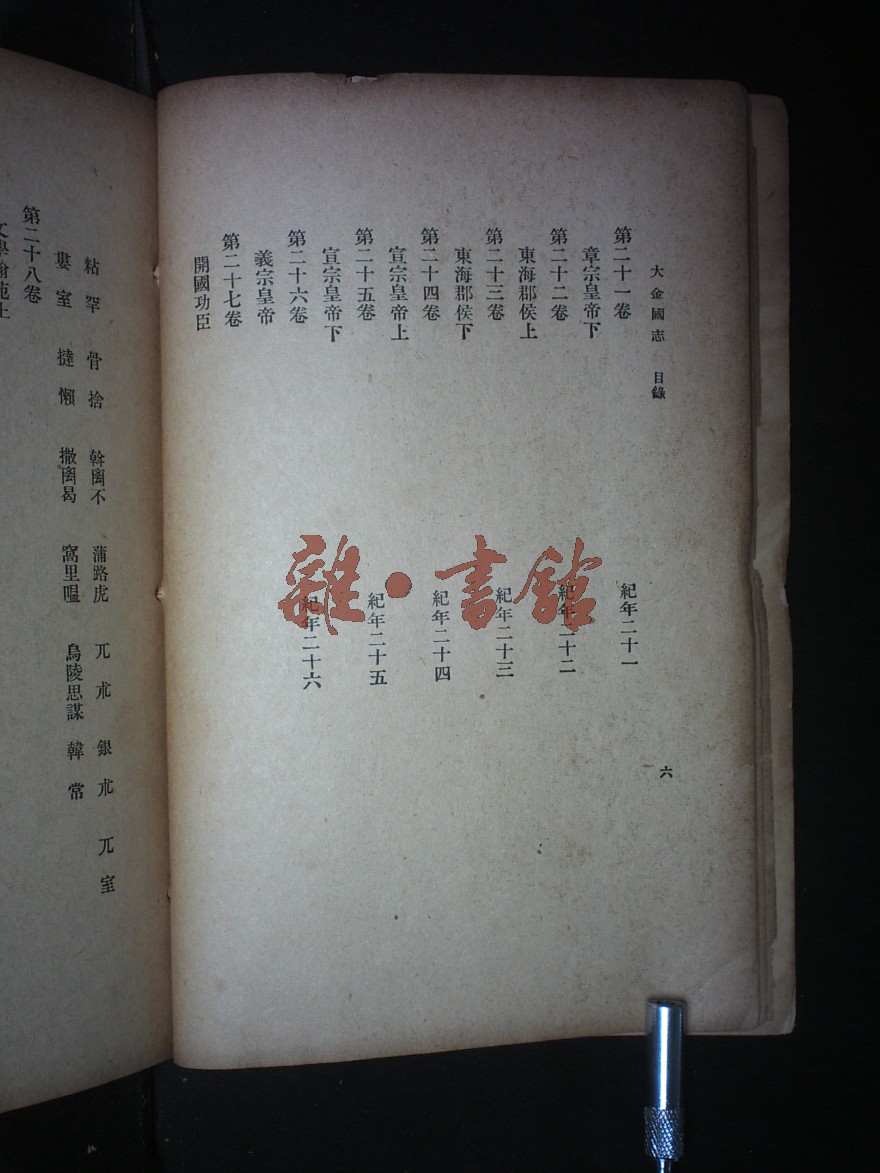 大金國志 目錄
六
第二十一卷
章宗皇帝下 紀年二十一
第二十二卷
東海郡侯上 紀年二十二
第二十三卷
東海郡侯下 紀年二十三
第二十四卷
宣宗皇帝上 紀年二十四
第二十五卷
宣宗皇帝下 紀年二十五
第二十六卷
義宗皇帝 紀年二十六
第二十七卷
開國功臣
粘罕 骨捨 斡离不 蒲路虎 兀朮 銀朮 兀室
婁室 撻懶 撒离曷 窩里嗢 烏陵思謀 韓常
第二十八卷
文學翰苑上
雜·書館